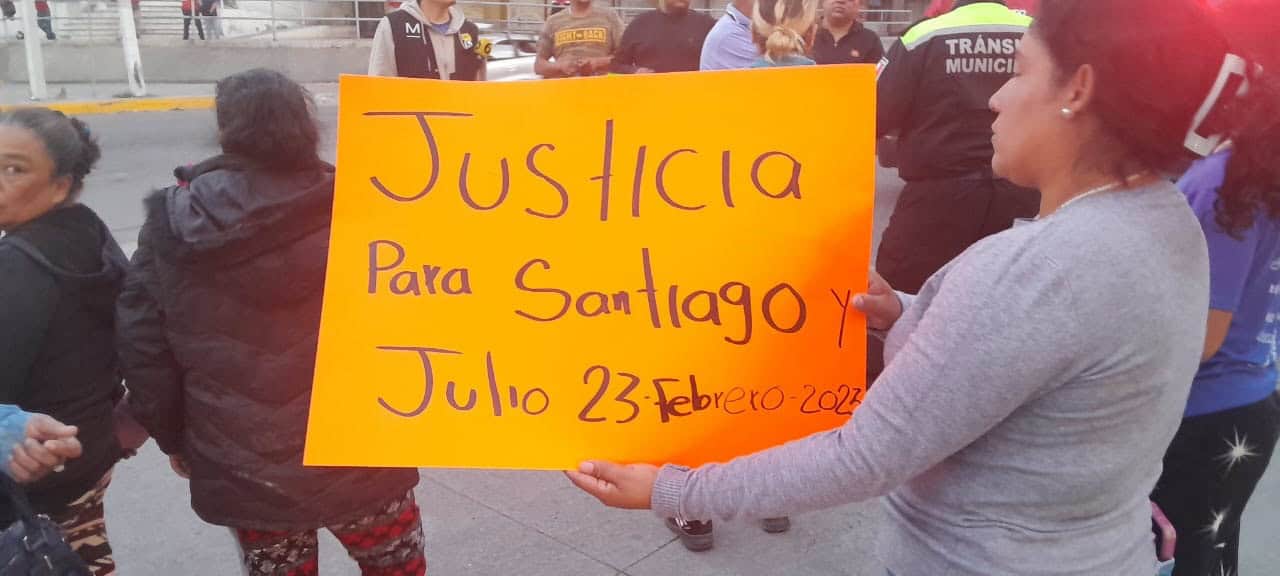 TRÁNSI
MUNICI
JUSTICIA
Para Santiago y
Julio 23-Febrero-2023